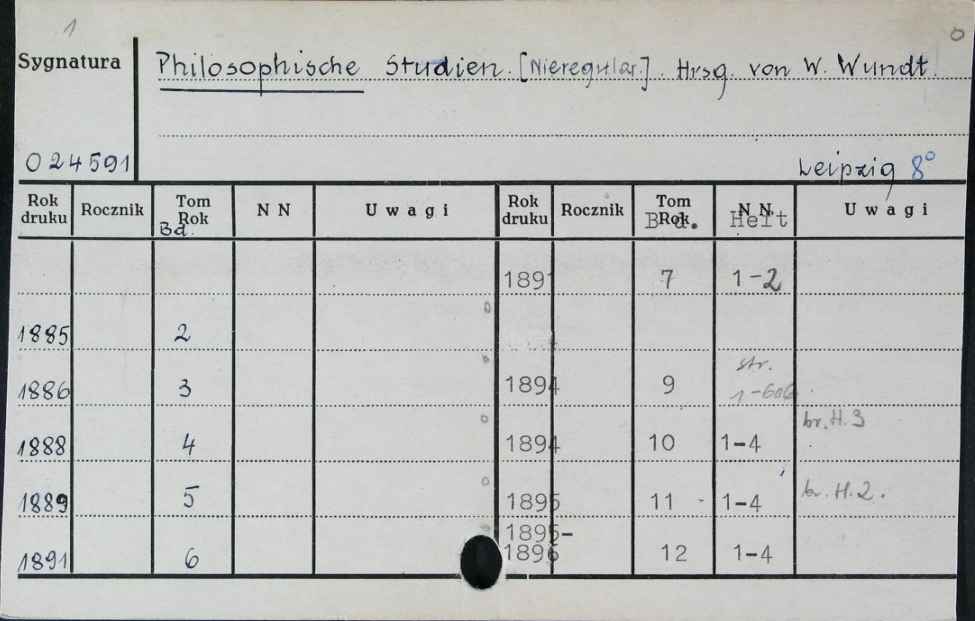 1
0
Sygnatura
Philosophische Studien. [Nieregular.]. Hrsg. von W. Wundt.
024591
Leipzig 8°
Rok druku Rocznik Tom Rok Bd. N N Uwagi Rok druku Rocznik Tom Rok Bd. N N Heft Uwagi
1891 7 1-2
1885 2
1886 3 1894 9 str. 1-606
1888 4 1894 10 1-4 br. H. 3
1889 5 1895 11 - 1-4 br. H. 2.
1891 6 1895-1896 12 1-4